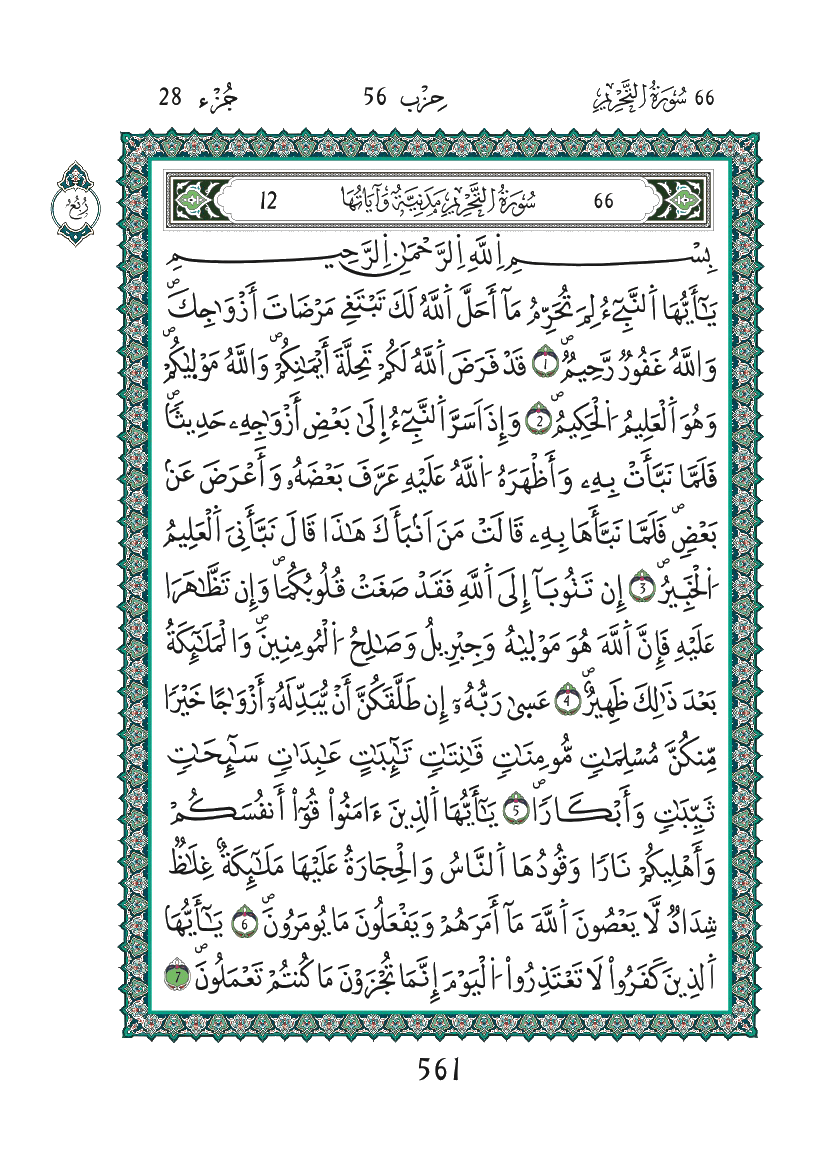 66 سُورَةُ التَّحْرِيمِ حِزْب 56 جُزْء 28
رُبُعُ
66 سُورَةُ التَّحْرِيمِ مَدَنِيَّةٌ وَآيَاتُهَا 12
بِسْمِ اِ۬للَّهِ اِ۬لرَّحْمَٰنِ اِ۬لرَّحِيمِ
يَٰٓأَيُّهَا اَ۬لنَّبِےٓءُ لِمَ تُحَرِّمُ مَآ أَحَلَّ اَ۬للَّهُ لَكَ تَبْتَغِے مَرْضَاتَ أَزْوَٰجِكَۖ
وَاللَّهُ غَفُورٞ رَّحِيمٞۖ 1 قَدْ فَرَضَ اَ۬للَّهُ لَكُمْ تَحِلَّةَ أَيْمَٰنِكُمْۖ وَاللَّهُ مَوْل۪يٰكُمْ
وَهُوَ اَ۬لْعَلِيمُ اُ۬لْحَكِيمُۖ 2 وَإِذَ اَسَرَّ اَ۬لنَّبِےٓءُ إِلَىٰ بَعْضِ أَزْوَٰجِهِۦ حَدِيثاٗۖ
فَلَمَّا نَبَّأَتْ بِهِۦ وَأَظْهَرَهُ اُ۬للَّهُ عَلَيْهِ عَرَّفَ بَعْضَهُۥ وَأَعْرَضَ عَنۢ
بَعْضٖۖ فَلَمَّا نَبَّأَهَا بِهِۦ قَالَتْ مَنَ اَنۢبَأَكَ هَٰذَا قَالَ نَبَّأَنِيَ اَ۬لْعَلِيمُ
اُ۬لْخَبِيرُۖ 3 إِن تَتُوبَآ إِلَى اَ۬للَّهِ فَقَدْ صَغَتْ قُلُوبُكُمَاۖ وَإِن تَظَّٰهَرَا
عَلَيْهِ فَإِنَّ اَ۬للَّهَ هُوَ مَوْل۪يٰهُ وَجِبْرِيلُ وَصَٰلِحُ اُ۬لْمُومِنِينَۖ وَالْمَلَٰٓئِكَةُ
بَعْدَ ذَٰلِكَ ظَهِيرٌۖ 4 عَس۪يٰ رَبُّهُۥٓ إِن طَلَّقَكُنَّ أَنْ يُّبَدِّلَهُۥٓ أَزْوَٰجاً خَيْراٗ
مِّنكُنَّ مُسْلِمَٰتٖ مُّومِنَٰتٖ قَٰنِتَٰتٖ تَٰٓئِبَٰتٍ عَٰبِدَٰتٖ سَٰٓئِحَٰتٖ
ثَيِّبَٰتٖ وَأَبْكَاراٗۖ 5 يَٰٓأَيُّهَا اَ۬لذِينَ ءَامَنُواْ قُوٓاْ أَنفُسَكُمْ
وَأَهْلِيكُمْ نَاراٗ وَقُودُهَا اَ۬لنَّاسُ وَالْحِجَارَةُ عَلَيْهَا مَلَٰٓئِكَةٌ غِلَٰظٞ
شِدَادٞ لَّا يَعْصُونَ اَ۬للَّهَ مَآ أَمَرَهُمْ وَيَفْعَلُونَ مَا يُومَرُونَۖ 6 يَٰٓأَيُّهَا
اَ۬لذِينَ كَفَرُواْ لَا تَعْتَذِرُواْ اُ۬لْيَوْمَ إِنَّمَا تُجْزَوْنَ مَا كُنتُمْ تَعْمَلُونَۖ 7
561